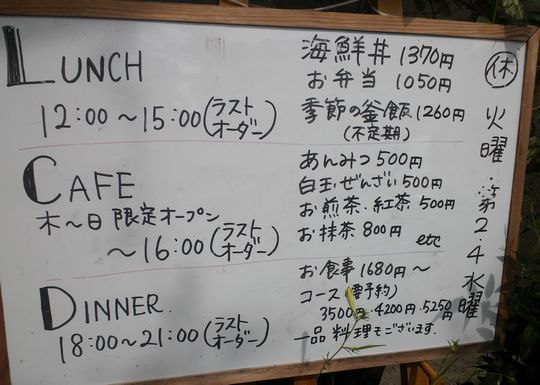 LUNCH
12:00～15:00(ラストオーダー)
海鮮丼 1370円
お弁当 1050円
季節の釜飯 1260円
(不定期)
CAFE
木～日 限定オープン
～16:00(ラストオーダー)
あんみつ 500円
白玉・ぜんざい 500円
お煎茶・紅茶 500円
お抹茶 800円
etc
DINNER
18:00～21:00(ラストオーダー)
お食事 1680円～
コース(要予約)
3500円・4200円・5250円
一品料理もございます.
休 火曜・第2・4水曜